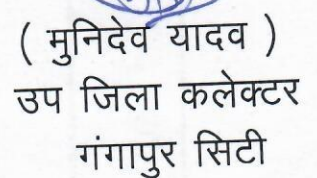 ( मुनिदेव यादव )
उप जिला कलेक्टर
गंगापुर सिटी